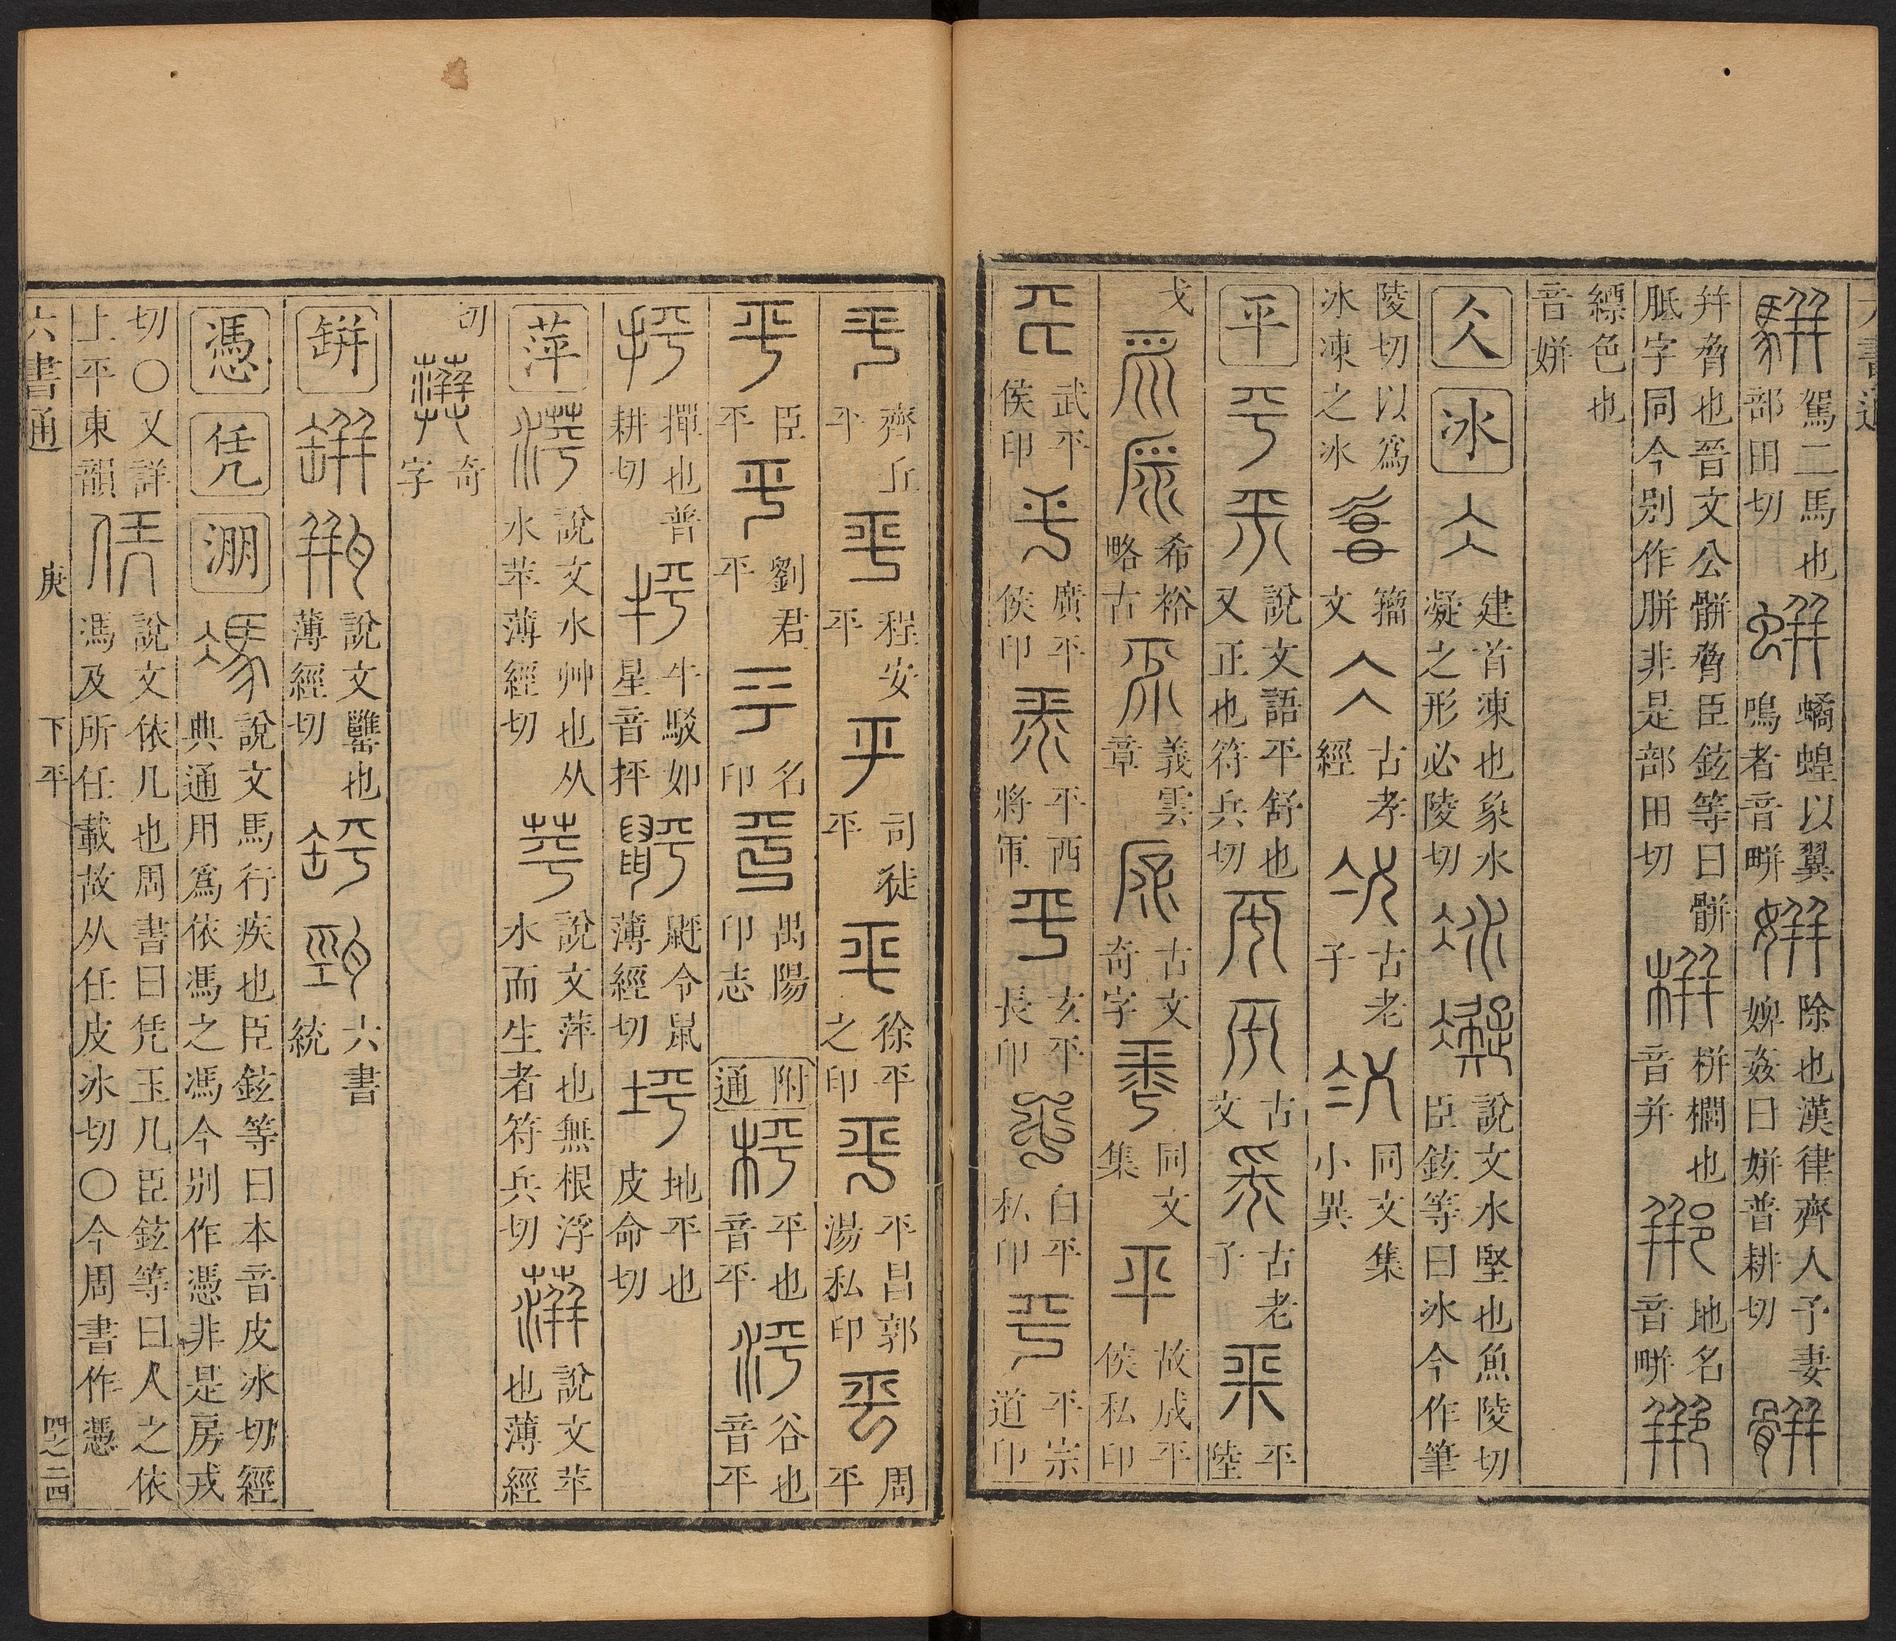 駕二馬也
部田切
蟠蝗以翼
鳴者音畊
除也漢律齊人予妻
婢姦曰姘普耕切
幷脅也晉文公骿脅臣鉉等曰骿
胝字同今别作胼非是部田切
栟櫚也
音并
地名
音畊
縹色也
音姘
仌
冰
建首凍也象水
凝之形必陵切
說文水堅也魚陵切
臣鉉等曰冰今作筆
陵切以爲
冰凍之冰
籀
文
古孝
經
古老
子
同文集
小異
平
說文語平舒也
又正也符兵切
古
文
古老
子
平
陸
戈
希裕
略古
義雲
章
古文
奇字
同文
集
故成平
侯私印
武平
侯印
廣平
侯印
平西
將軍
玄平
長印
白平
私印
平宗
道印
齊丘
平
程安
平
司徒
平
徐平
之印
平昌郭
湯私印
周
平
臣
平
劉君
平
名
印
禺陽
印志
附
通
平也
音平
谷也
音平
撣也普
耕切
牛駁如
星音抨
鼠令鼠
薄經切
地平也
皮命切
萍
說文水艸也从
水苹薄經切
說文萍也無根浮
水而生者符兵切
說文苹
也薄經
切
奇
字
缾
說文罋也
薄經切
六書
統
憑
凭
淜
說文馬行疾也臣鉉等曰本音皮冰切經
典通用爲依馮之馮今别作憑非是房戎
切〇又詳
上平東韻
說文依几也周書曰凭玉几臣鉉等曰人之依
馮及所任載故从任皮冰切〇今周書作憑
六書通
庚
下平
四之二四